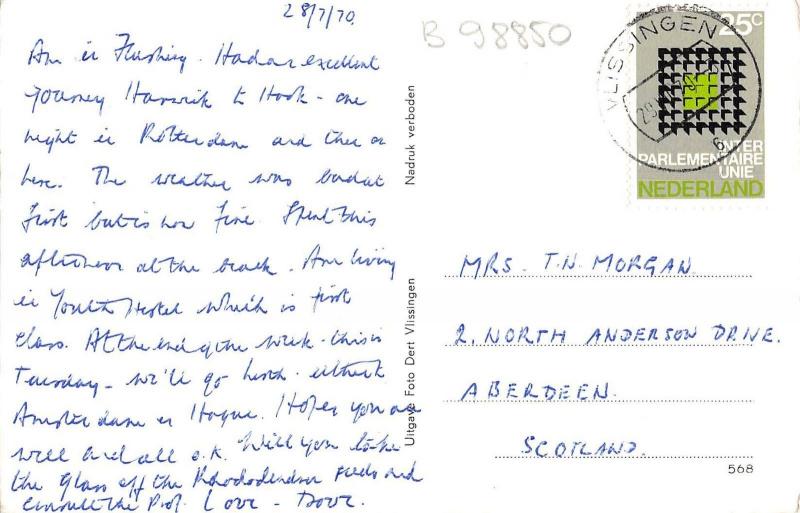 28/7/70.
B 98850
Am in Flushing. Had an excellent
journey Harwich to Hook - one
night in Rotterdam and then on
here. The weather was bad at
first but is now fine. Spent this
afternoon at the beach. Am living
in Youth Hostel which is first
class. At the end of the week - this is
Tuesday - we'll go north - either
Amsterdam or Hague. Hope you are
well and all o.k. Will you take
the glass off the Rhododendron seeds and
consult the Prof. Love -
Nadruk verboden
Uitgave Foto Dert Vlissingen
VLISSINGEN
6
25c
INTER
PARLEMENTAIRE
UNIE
NEDERLAND
MRS. T.N. MORGAN
2, NORTH ANDERSON DRIVE.
ABERDEEN.
SCOTLAND.
568